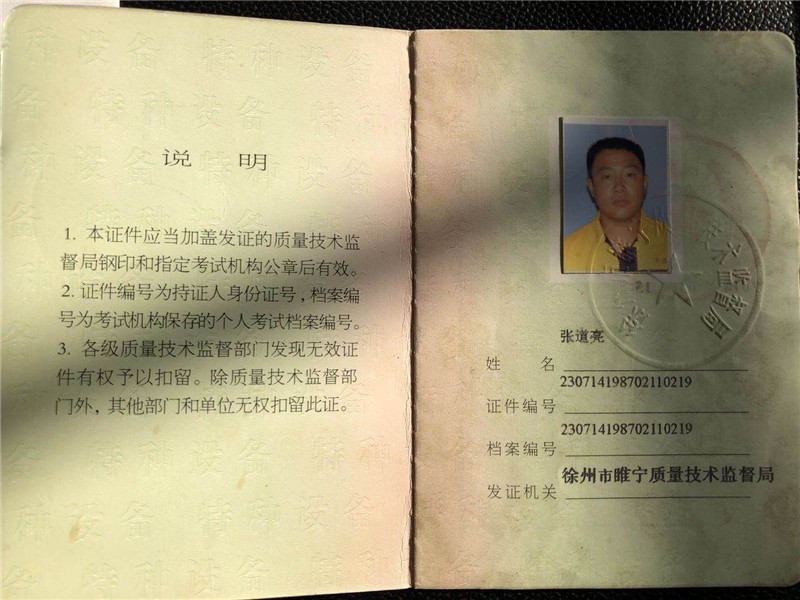 说 明
1. 本证件应当加盖发证的质量技术监
督局钢印和指定考试机构公章后有效。
2. 证件编号为持证人身份证号，档案编
号为考试机构保存的个人考试档案编号。
3. 各级质量技术监督部门发现无效证
件有权予以扣留。除质量技术监督部
门外，其他部门和单位无权扣留此证。
张道亮
姓 名
230714198702110219
证件编号
230714198702110219
档案编号
徐州市睢宁质量技术监督局
发证机关